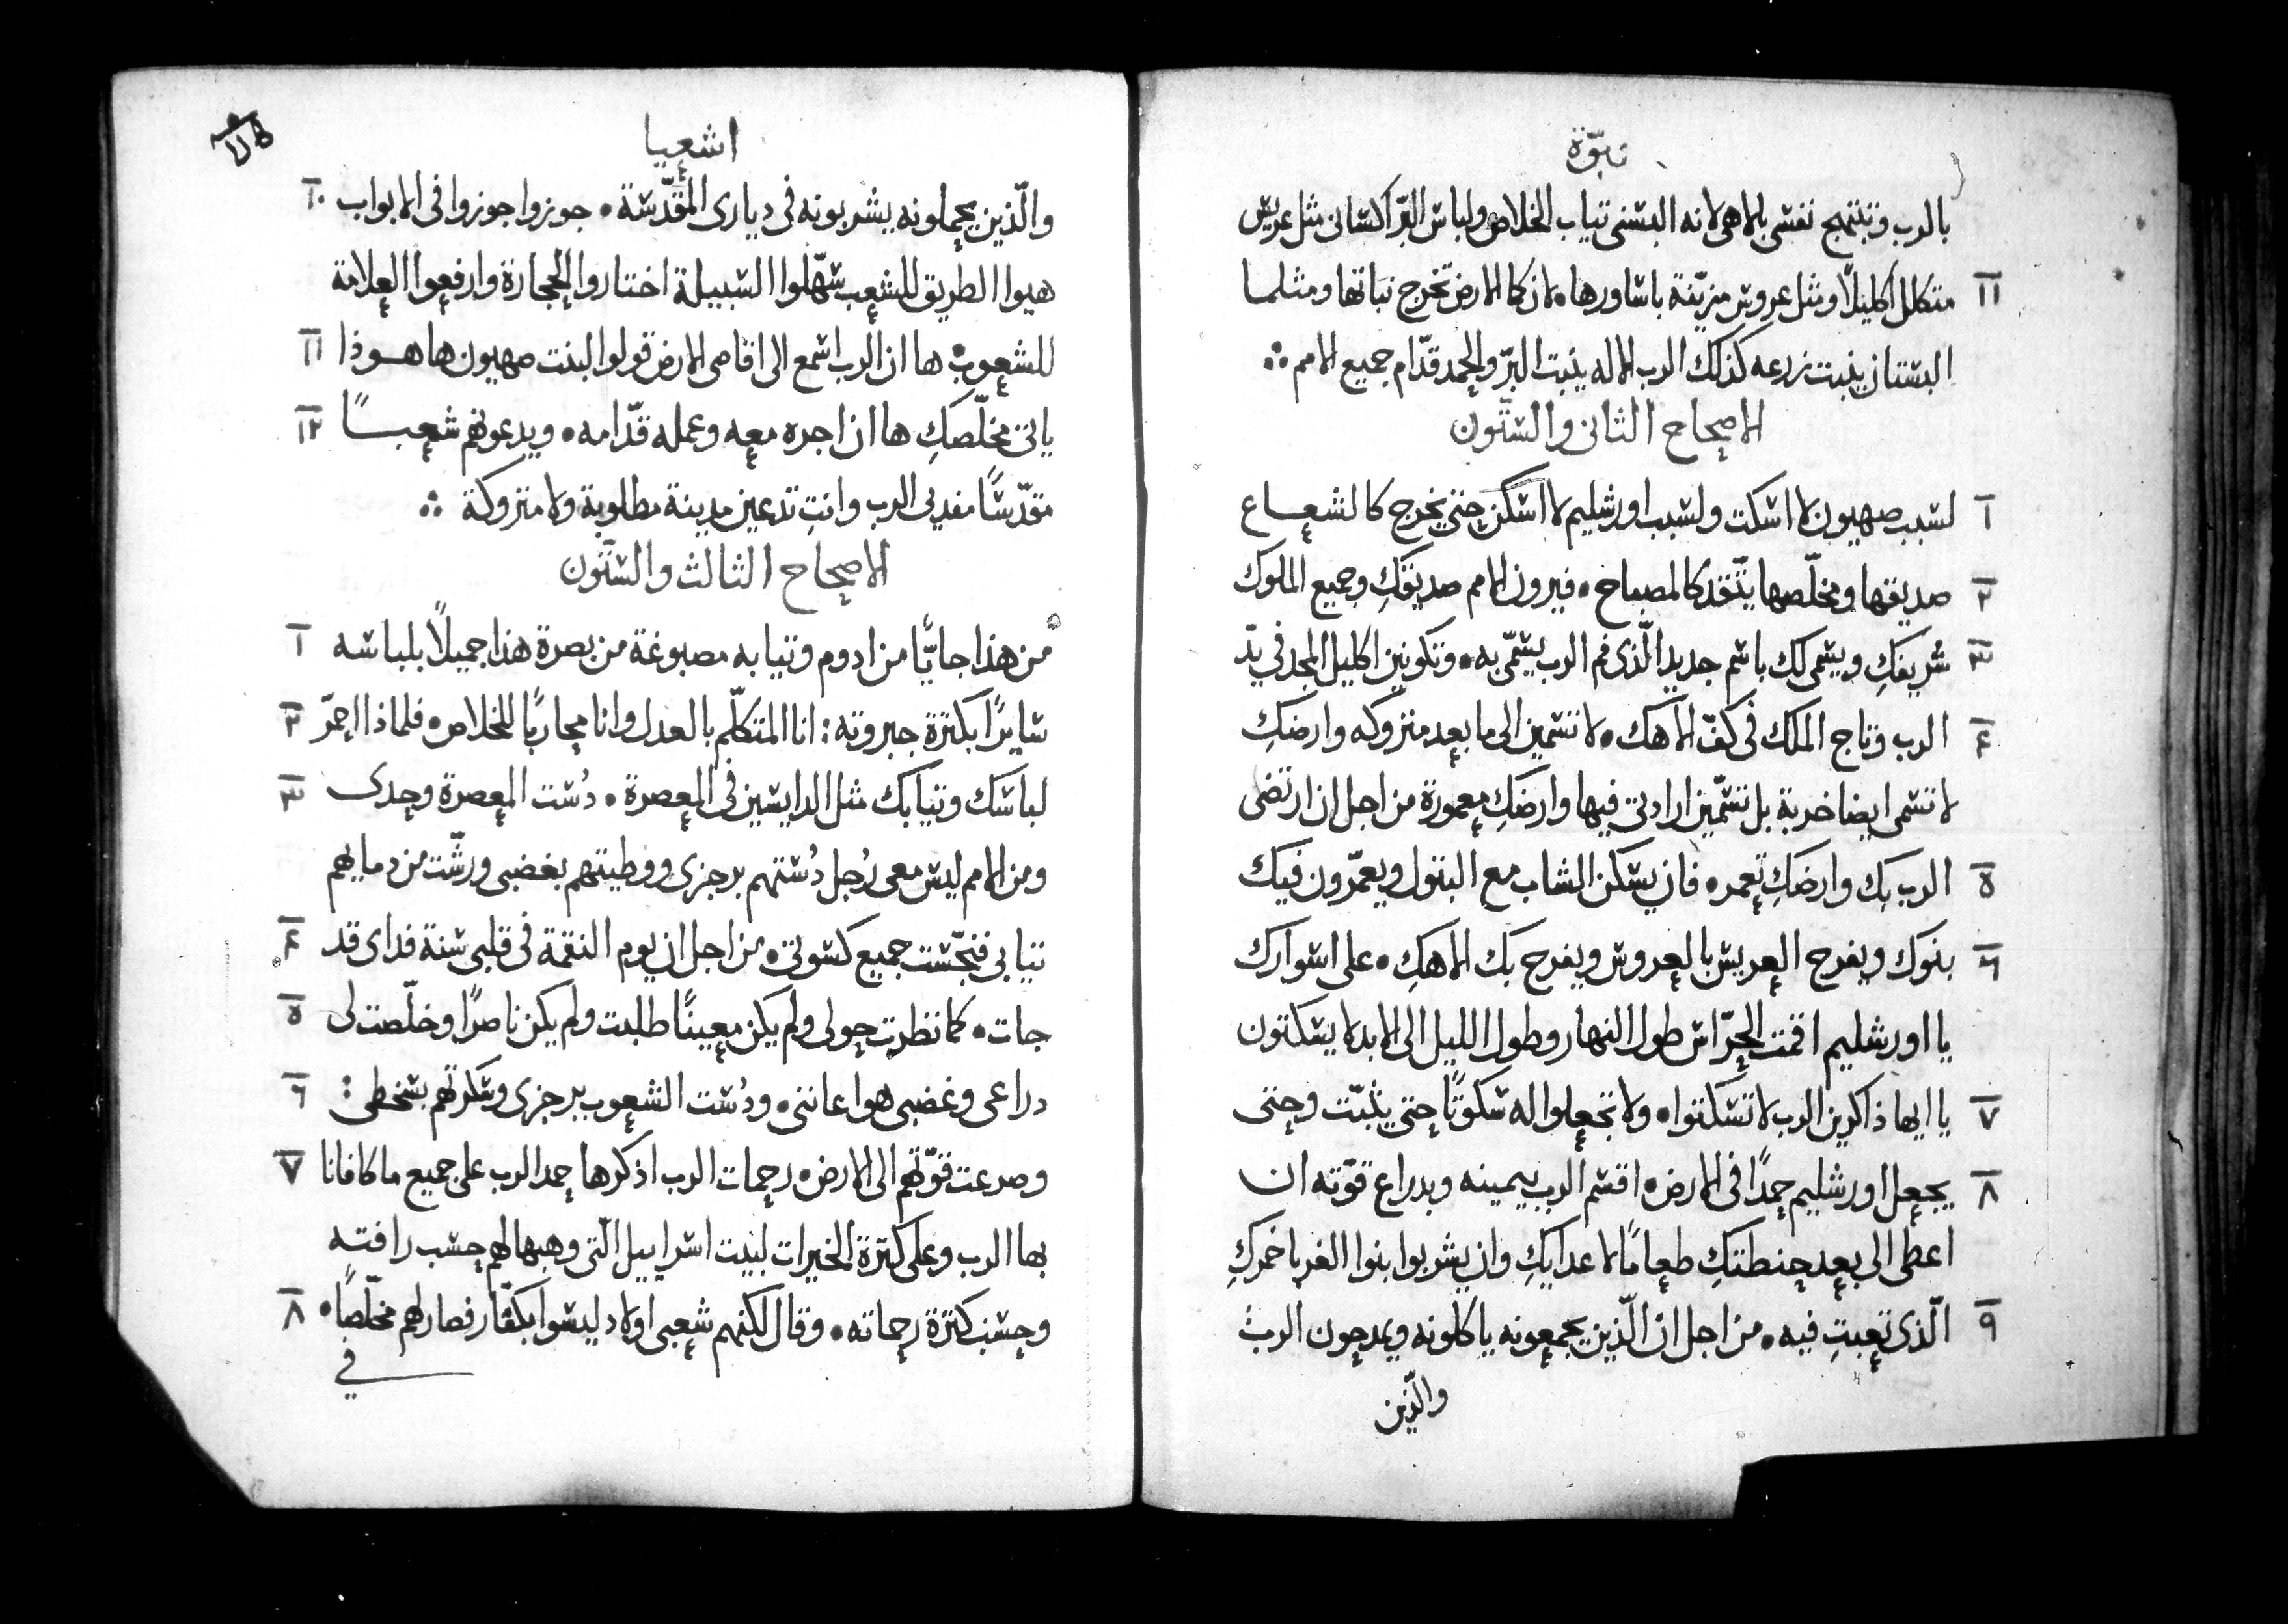 نبوّة
بالرب وتبتهج نفسى بالاهى لانه البسنى تياب الخلاص ولباس البرّ اكسانى مثل عريس
متكلل اكليلاً ومثل عروس مزيّنة باساورها • لان كما الارض تخرج نباتها ومثلما ١١
البستان ينبت زرعه كذلك الرب الاله ينبت البرّ والحمد قدّام جميع الامم
الاصحاح الثانى والستّون
لسبب صهيون لا اسكت ولسبب اورشليم لا اسكن حتى يخرج كالشعاع ١
صديقها ومخلّصها يتّقد كالمصباح • فيرون الامم صديقكِ وجميع الملوك ٢
شريفكِ ويسمى لك باسم جديد الّذى فم الرب يسمّى به • وتكونين اكليل المجد فى يدّ ٣
الرب وتاج الملك فى كفّ الاهك • لا تسمين الى ما بعد متروكه وارضكِ ٤
لا تسمى ايضا خربة بل تسمّين ارادتى فيها وارضكِ معمورة من اجل ان ارتضى
الرب بك وارضكِ تعمر • فان يسكن الشاب مع البتول ويعمّرون فيك ٥
بنوك ويفرح العريس بالعروس ويفرح بك الاهكِ • على اسوارك ٦
يا اورشليم اقمت الحرّاس طول النهار وطول الليل الى الابد لا يسكتون
يا ايها ذاكرين الرب لا تسكتوا • ولا تجعلوا له سكوتًا حتى يثبّت وحتى ٧
يجعل اورشليم حمدًا فى الارض • اقسم الرب بيمينه وبدراع قوّته ان ٨
اعطى الى بعد حنطتكِ طعامًا لاعدايكِ وان يشربوا بنوا الغربا خمركِ
الّذى تعبتِ فيه • من اجل ان الّذين يجمعونه ياكلونه ويمدحون الرب ٩
والّذين
اشعيا
والّذين يحملونه يشربونه فى ديارى المقدّسة • جوزوا جوزوا فى الابواب ١٠
هيوا الطريق للشعب سهّلوا السبيلة اختاروا الحجارة وارفعوا العلامة
للشعوب • ها ان الرب اسمع الى اقاصى الارض قولوا لبنت صهيون ها هوذا ١١
ياتى مخلّصكِ ها ان اجره معه وعمله قدّامه • ويدعونهم شعبًا ١٢
مقدّسًا مفديى الرب وانتِ تدعين مدينة مطلوبة ولا متروكة
الاصحاح الثالث والستّون
من هذا جايًّا من ادوم وتيابه مصبوغة من بصرة هذا جميلاً بلباسه ١
سايرًا بكترة جبروته : انا المتكلّم بالعدل وانا محاربًا للخلاص • فلماذا احمرّ ٢
لباسك وتيابك مثل الدايسين فى المعصرة • دُست المعصرة وحدى ٣
ومن الامم ليس معى رُجل دُستهم برجزى ووطيتهم بغضبى ورشّت من دمايهم
تيابى فنجّست جميع كسوتى • من اجل ان يوم النقمة فى قلبى سنة فداى قد ٤
جات • كما نظرت حولى ولم يكن معينًا طلبت ولم يكن ناصرًا وخلّصت لى ٥
دراعى وغضبى هوا عاننى • ودُست الشعوب برجزى وسكرتهم بسخطى : ٦
وصرعت قوّتهم الى الارض • رحمات الرب اذكرها حمد الرب على جميع ما كافانا ٧
بها الرب وعلى كترة الخيرات لبيت اسراييل الّتى وهبها لهم حسب رافته
وحسب كترة رحماته • وقال لكنهم شعبى اولاد ليسوا بكفّار فصار لهم مخلّصًا • ٨
فى